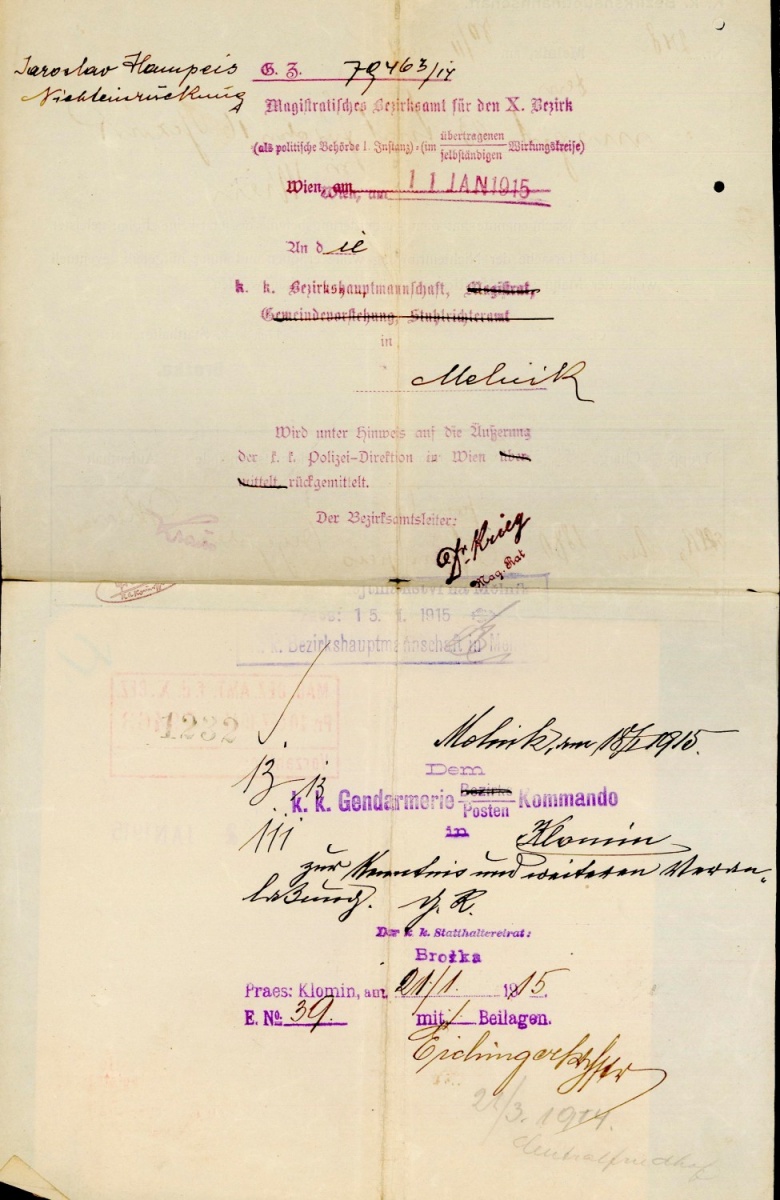 Jaroslav Hampeis
Nichteinrückung
G. Z. 79463/14
Magistratisches Bezirksamt für den X. Bezirk
(als politische Behörde I. Instanz) - (im übertragenen
selbständigen Wirkungskreise)
Wien, am 11 JAN 1915
Wien, am
An die
k. k. Bezirkshauptmannschaft, Magistrat,
Gemeindevorstehung, Stuhlrichteramt
in
Melnik
Wird unter Hinweis auf die Äußerung
der k. k. Polizei-Direktion in Wien über-
mittelt, rückgemittelt.
Der Bezirksamtsleiter:
Dr. Krieg
Mag. Rat
15. 1. 1915
k. k. Bezirkshauptmannschaft in
1232
Melnik, am 18/I 1915.
Dem
k. k. Gendarmerie Bezirks
Posten Kommando
in Klomin
zur Kenntnis und weiteren Veran-
laßung.
Der k. k. Statthaltereirat:
Brožka
Praes: Klomin, am 21/1. 1915.
E. No: 39. mit / Beilagen.
21/3. 1914.
Centralfriedhof